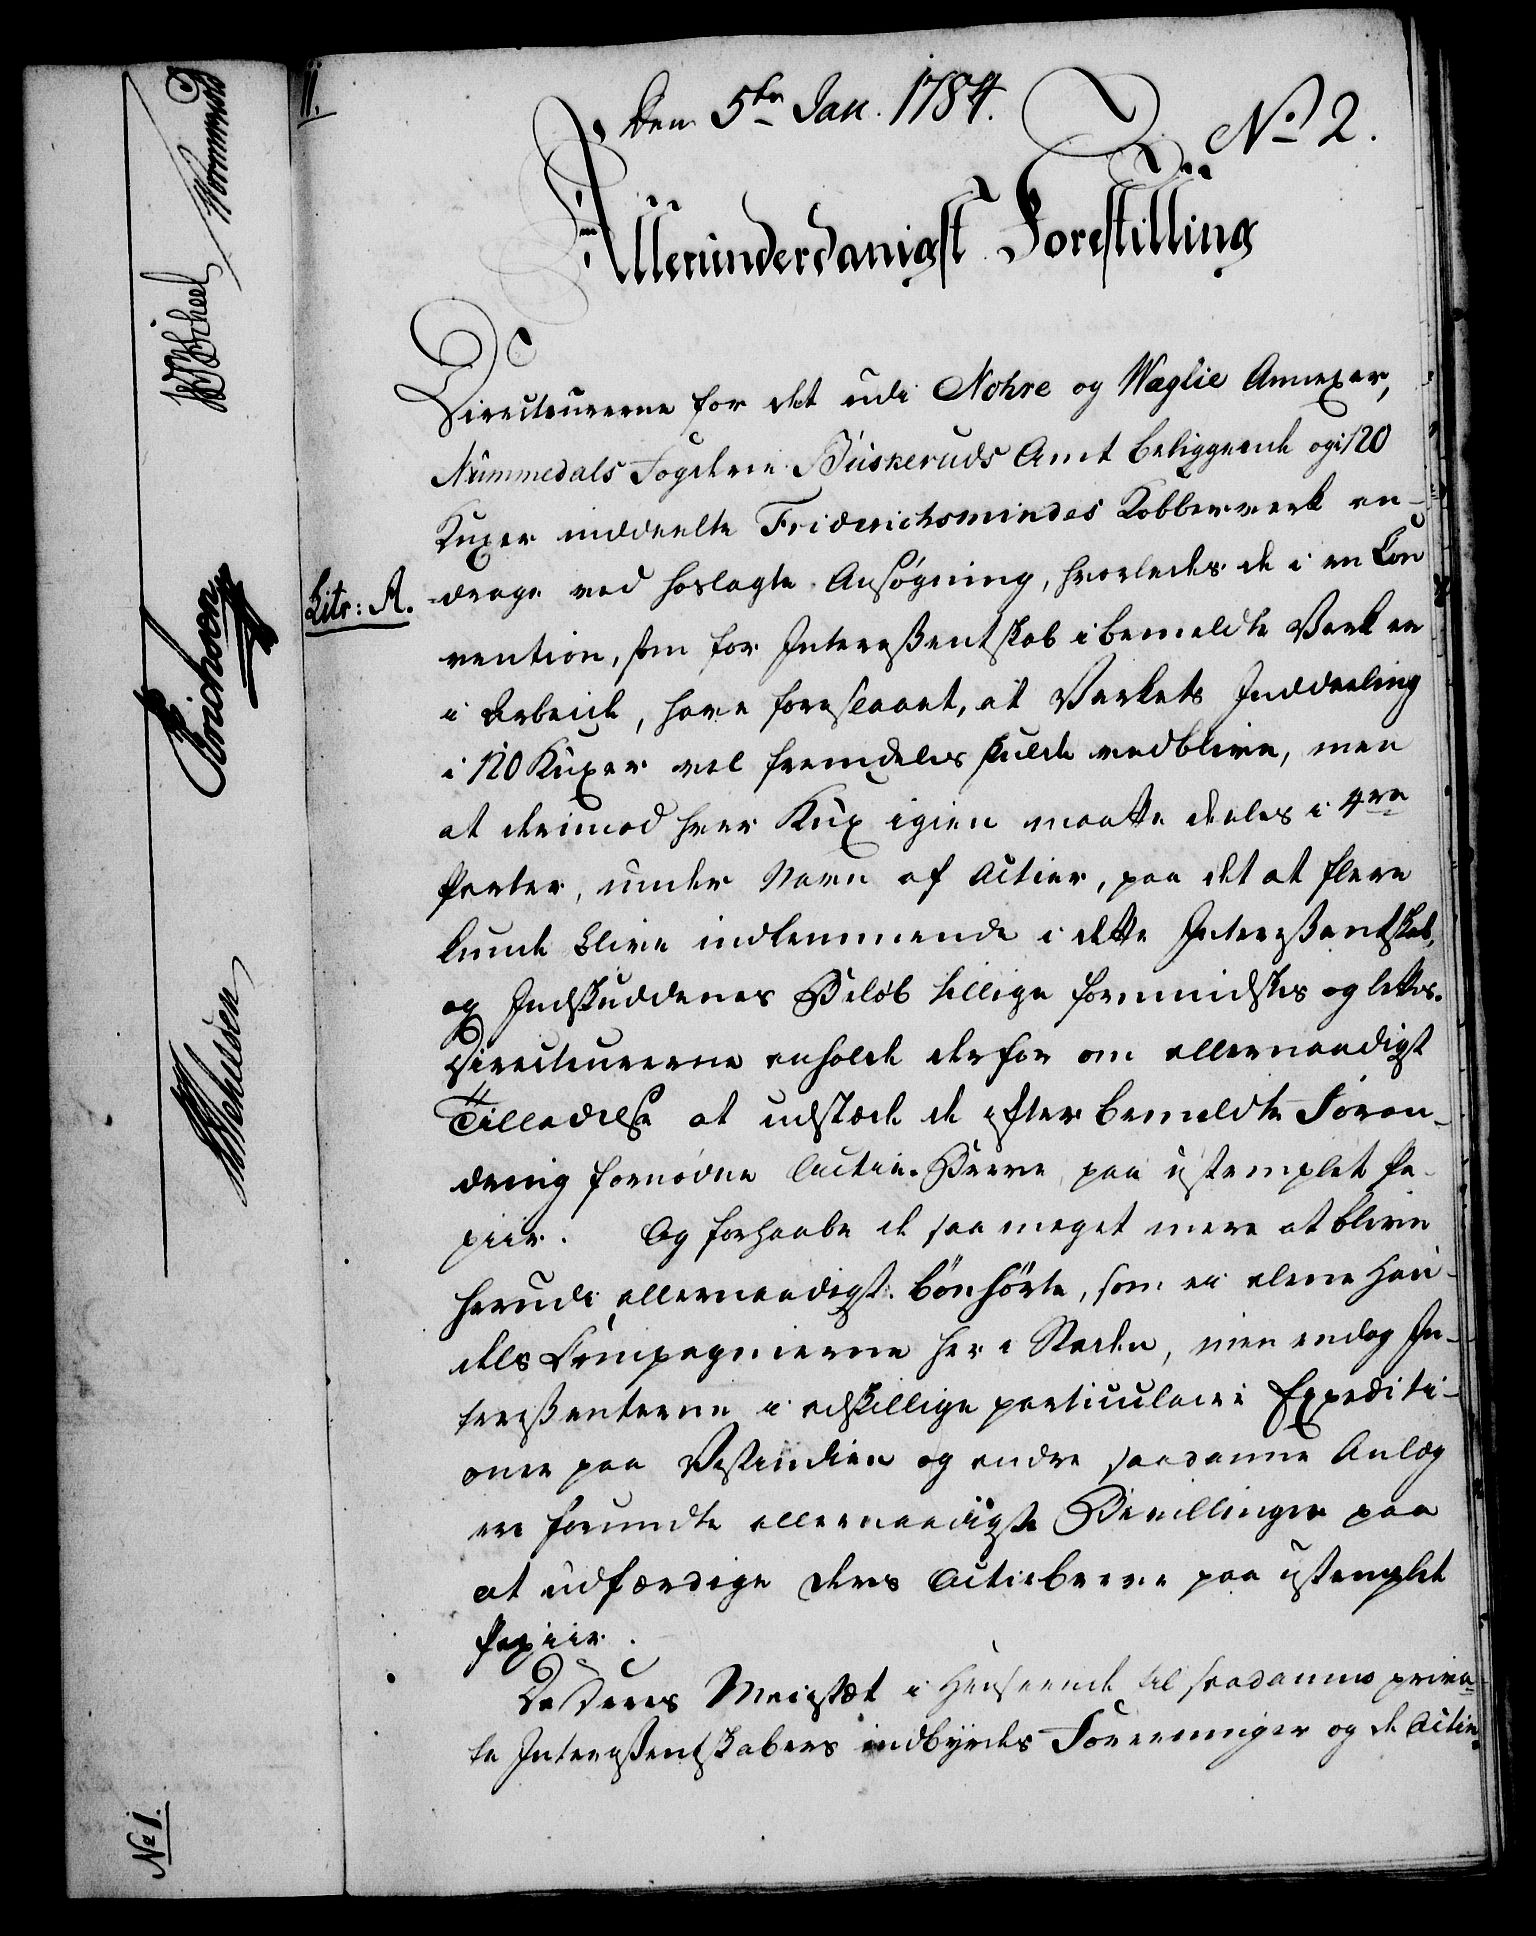 11.
Den 5te Jan. 1784.
No 2.
Allerunderdanigst Forestilling
Directeurerne for det udi Nohre og Wæglie Annexer,
Nummedals Fogderie Buskeruds Amt beliggende og i 120
Kuxer inddeelte Friderichsmindes Kobberverk an-
drage ved hoslagte Ansøgning, hvorledes de i en Con
Litr: A.
vention, som for Interessentskab i bemeldte Verk er
i Arbeide, have foreslaaet, at Verkets Inddeeling
i 120 Kuxer vel fremdeles skulde vedblive, men
at derimod hver Kux igien maatte deeles i 4re
Parter, under Navn af Actier, paa det at flere
kunde blive indlemmende i dette Interessentskab,
og Indskuddenes Beløb tillige formindskes og lettes.
Directeurerne anholde derfor om allernaadigst
Tilladelse at udstæde de efter bemeldte Foran-
dring fornødne Actie-Breve paa ustemplet Pa-
piir. Og forhaabe de saa meget mere at blive
herudi allernaadigst bönhörte, som ei alene Han-
dels Compagnierne her i Staden, men endog In-
teressenterne i adskillige particulaire Expediti-
oner paa Vestindien og andre saadanne Anlæg
ere forundte allernaadigste Bevillinger paa
at udfærdige deres Actiebreve paa ustemplet
Papiir.
Da Deres Majestæt i Henseende til saadanne priva-
te Interessentskabers indbyrdes Foreeninger og de Actie-
No 1.